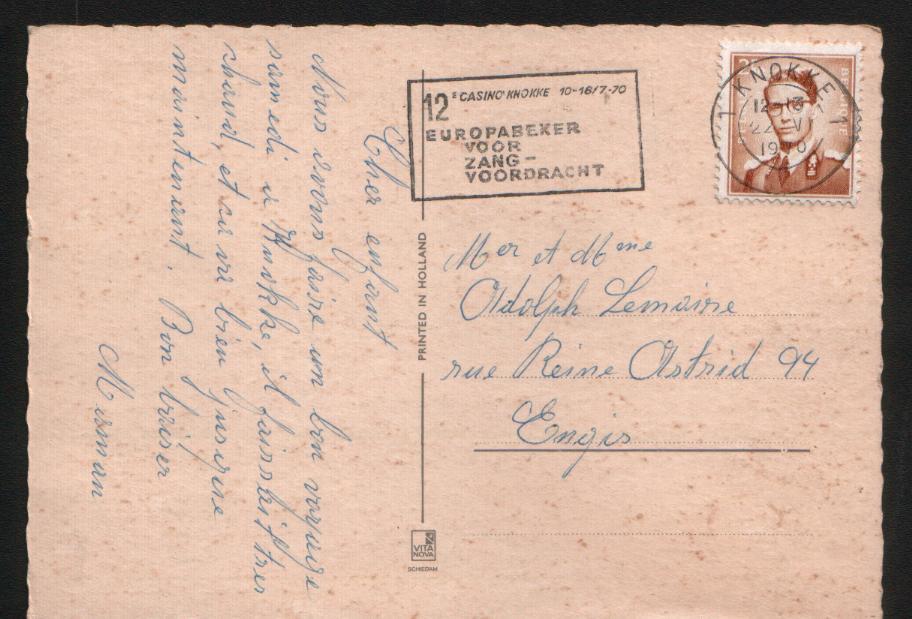 Cher enfant
Nous avons faire un bon voyage
samedi a Knokke, il faissait tres
chaud, et ca va bien jusque
maintenant. Bon baiser
Maman
PRINTED IN HOLLAND
VITA
NOVA
SCHIEDAM
12E CASINO KNOKKE 10-16/7-70
EUROPABEKER
VOOR
ZANG-
VOORDRACHT
KNOKKE
1 1
12-13
1970
Mer et Mme
Adolph Lemaire
rue Reine Astrid 94
Engis